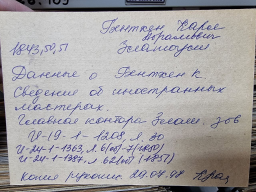 Гынткен Карл
Абрамович
1843,50,51 Златоуст
Данные о Гынткен К
Сведение об иностранных
мастерах.
Главная контора Злат. зав
И-19-1-1208, л. 30
И-24-1-1363, л. 6(об)-7(1850)
И-24-1-1387, л. 62(об) (1857)
Копия рукопис 29.04.98